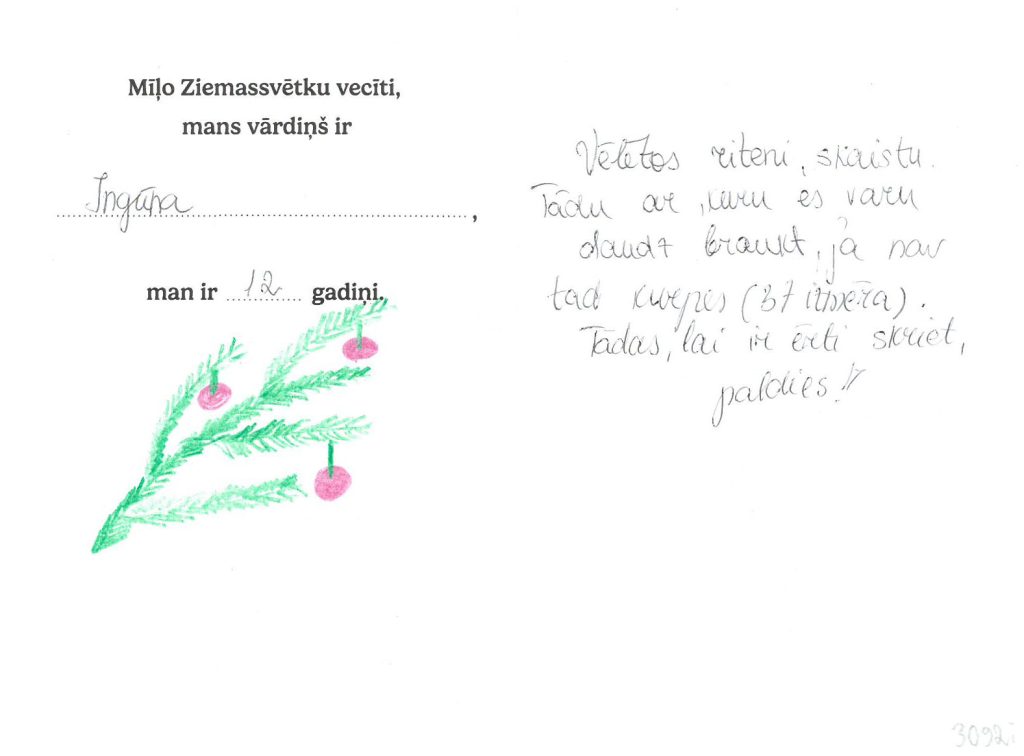 Mīļo Ziemassvētku vecīti,
mans vārdiņš ir
Ingūna,
man ir 12 gadiņi.
Vēlētos riteni, skaistu.
Tādu ar kuru es varu
daudz braukt, ja nav
tad kurpes (37 izmēra).
Tādas, lai ir ērti skriet,
paldies!!
3092i